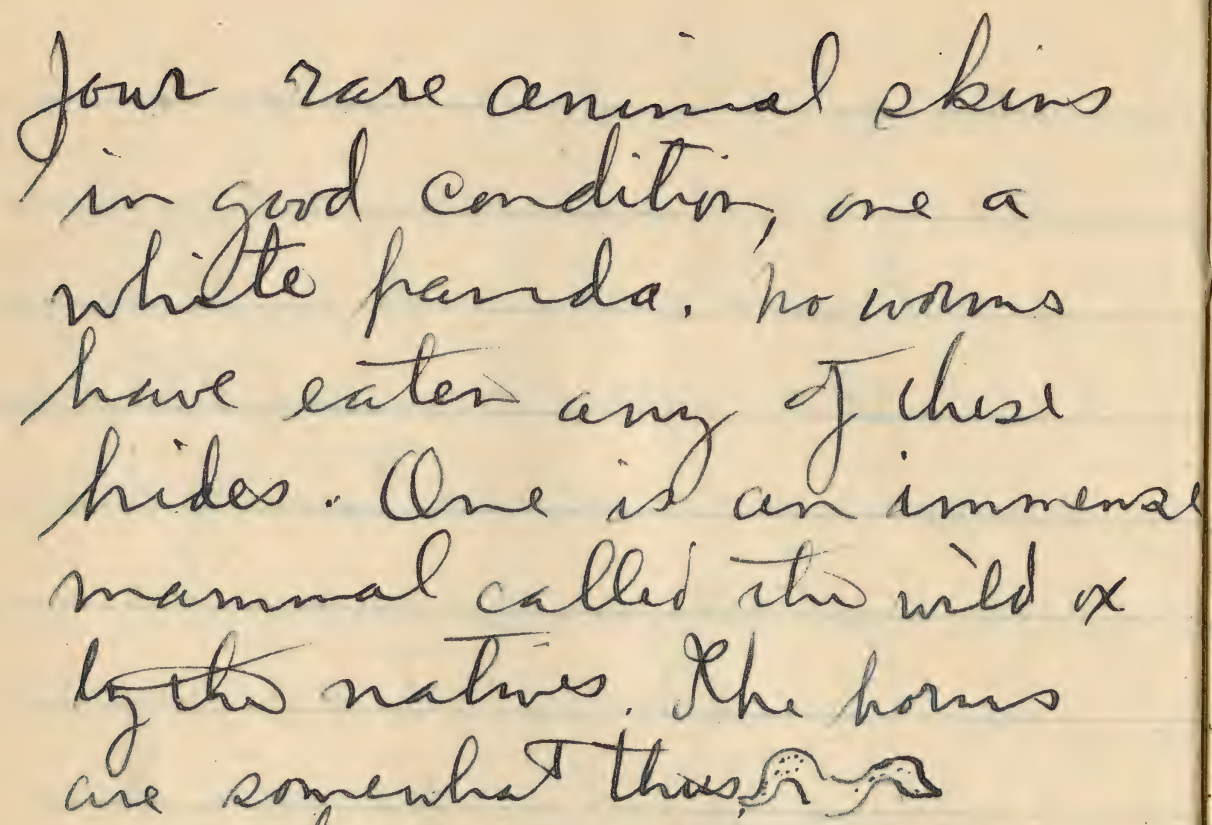 four rare animal skins
in good condition, one a
white panda. No worms
have eaten any of these
hides. One is an immense
mammal called the wild ox
by the natives. The horns
are somewhat thus,